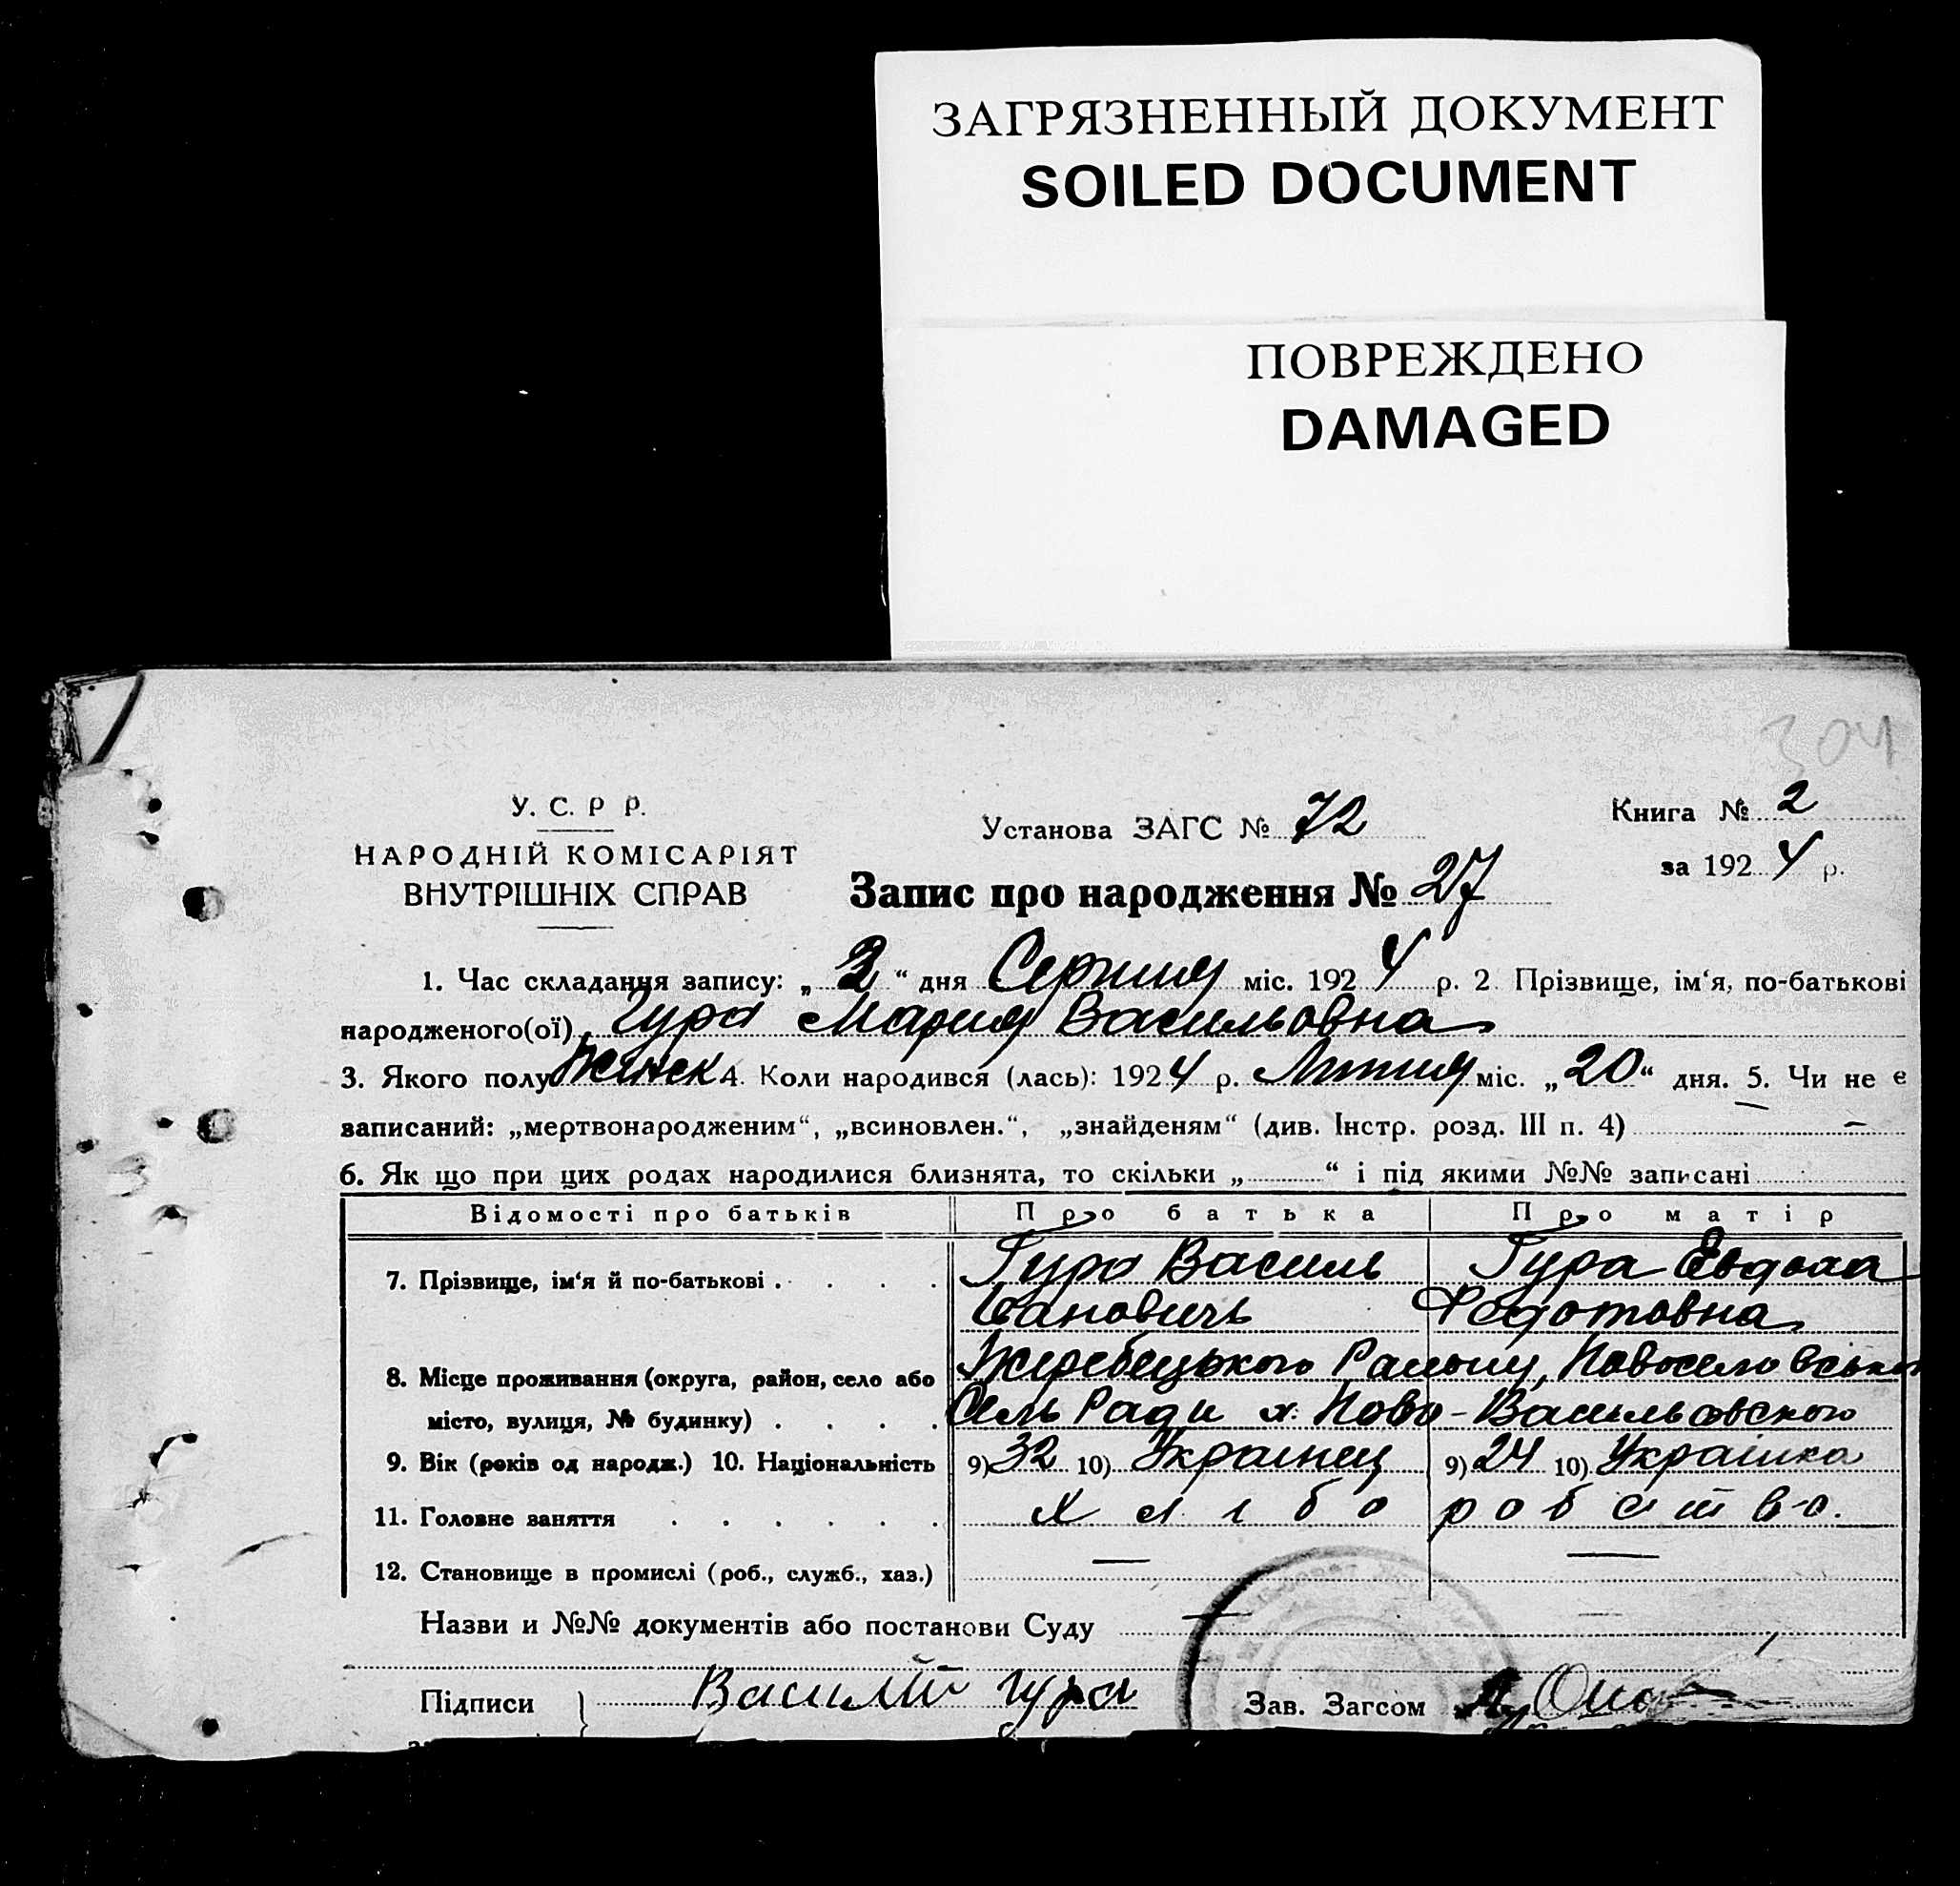 ЗАГРЯЗНЕННЫЙ ДОКУМЕНТ
SOILED DOCUMENT
ПОВРЕЖДЕНО
DAMAGED
304
У. С. Р Р.
НАРОДНІЙ КОМІСАРІЯТ
ВНУТРІШНІХ СПРАВ
Установа ЗАГС № 72
Книга № 2
за 1924 р.
Запис про народження № 27
1. Час складання запису: „ 3 “ дня Серпня міс. 1924 р. 2 Прізвище, ім‘я, по-батькові
народженого(ої) Гура Мария Васильовна
3. Якого полу Жінск 4. Коли народився (лась): 1924 р. Липня міс. „20“ дня. 5. Чи не є
записаний: „мертвонародженим“, „всиновлен.“, „знайденям“ (див. Інстр. розд. III п. 4) —
6. Як що при цих родах народилися близнята, то скільки „ “ і під якими №№ записані
Відомості про батьків Про батька Про матір
7. Прізвище, ім‘я й по-батькові . . . . Гура Василь Гура Евдокія
Іванович Федотовна
8. Місце проживання (округа, район, село або Жеребецького Району, Новоселовської
місто, вулиця, № будинку) . . . . Сель Ради х. Ново-Васильовского
9. Вік (років од народж.) 10. Національність 9) 32 10) Украінец 9) 24 10) Украінка
11. Головне заняття . . . . . . Хлібо робство.
12. Становище в промислі (роб., служб., хаз.) — —
Назви и №№ документів або постанови Суду —
Підписи } Василій Гура Зав. Загсом